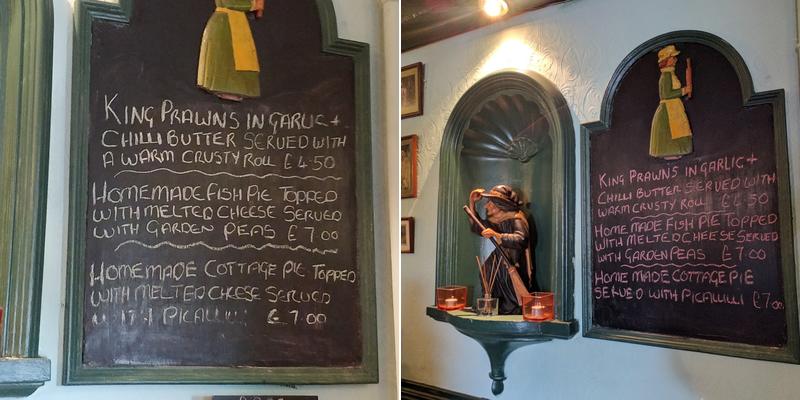 KING PRAWNS IN GARLIC +
CHILLI BUTTER SERVED WITH
A WARM CRUSTY ROLL £4.50
HOMEMADE FISH PIE TOPPED
WITH MELTED CHEESE SERVED
WITH GARDEN PEAS £7.00
HOMEMADE COTTAGE PIE TOPPED
WITH MELTED CHEESE SERVED
WITH PICALLILLI £7.00
KING PRAWNS IN GARLIC +
CHILLI BUTTER SERVED WITH
WARM CRUSTY ROLL £4.50
HOME MADE FISH PIE TOPPED
WITH MELTED CHEESE SERVED
WITH GARDEN PEAS £7.00
HOME MADE COTTAGE PIE
SERVED WITH PICALLILLI £7.00